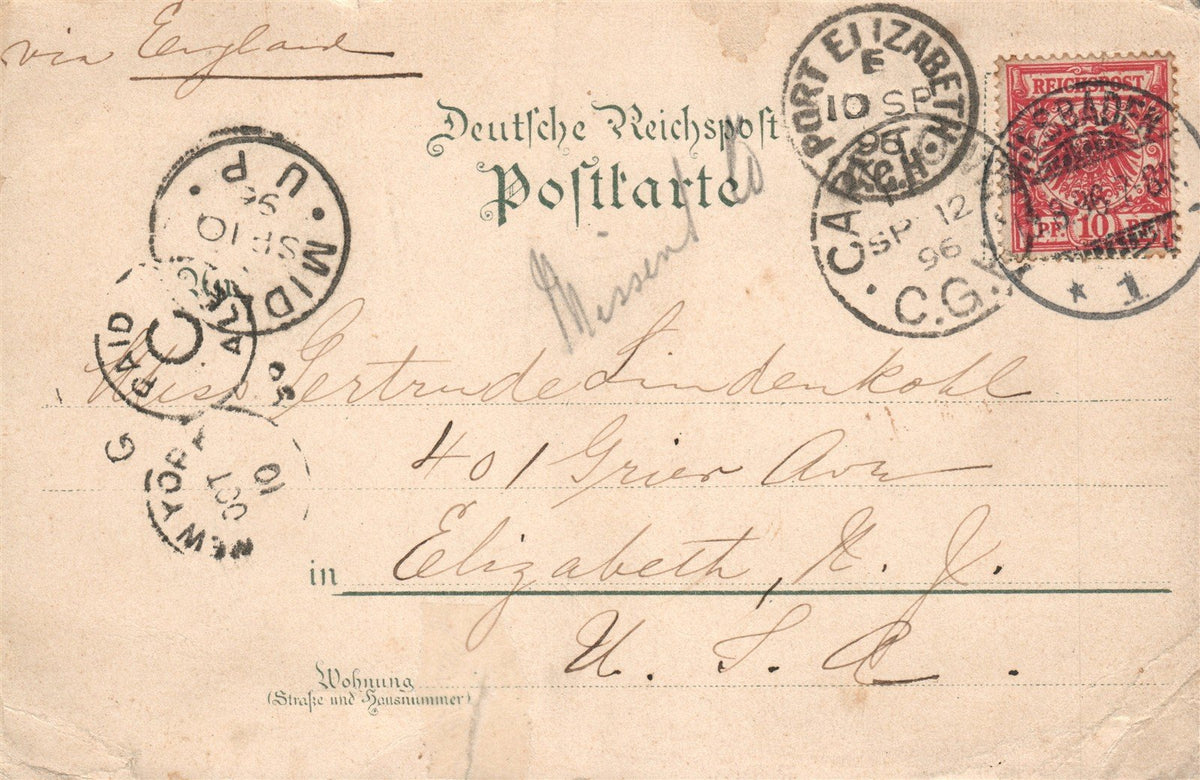 via England
Deutsche Reichspost
Postkarte
Missent to
REICHSPOST
PF. 10 PF.
WIESBADEN
* 1
PORT ELIZABETH
E
10 SP
96
C.G.H.
SP 12
96
C.G.
U.P. MID.
SP 10
96
PAID
ALL
C
G
NEW YORK
OCT
10
Miss. Gertrude Lindenkohl
401 Grier Ave
Elizabeth, N. J.
in
U. S. A.
Wohnung
(Straße und Hausnummer)